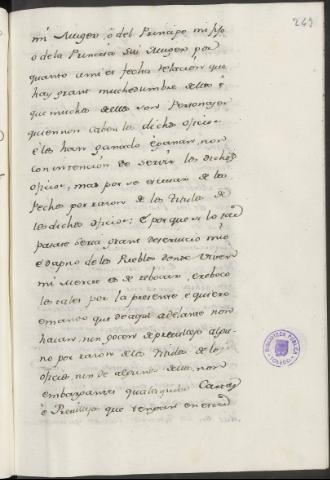 249
mi Muger, ó del Principe mi fijo
ó de la Princesa sui Muger por
quanto á mi es fecha relacion que
hay grant muchedumbre dellos é
que muchos dellos son Personas
quien non caben los dichos oficios
é los han ganado é ganan, non
con intencion de servir los dichos
oficios, mas por se escusar de los
Pechos por razon de los Titulos de
los dichos oficios; é porque si lo tal
pasase sería grant deservicio mio
é dapno de los Pueblos donde viven
mi Merced es de rebocar, é reboco
los tales por la presente é quiero
é mando que de aqui adelante non
hayan, nin gocen de previllejo algu-
no por razon de los Titulos de los
oficios, nin de alguno dellos, non
embargantes qualesquier Cartas
é Previllejos que tengan en esta
BIBLIOTECA PUBLICA
TOLEDO